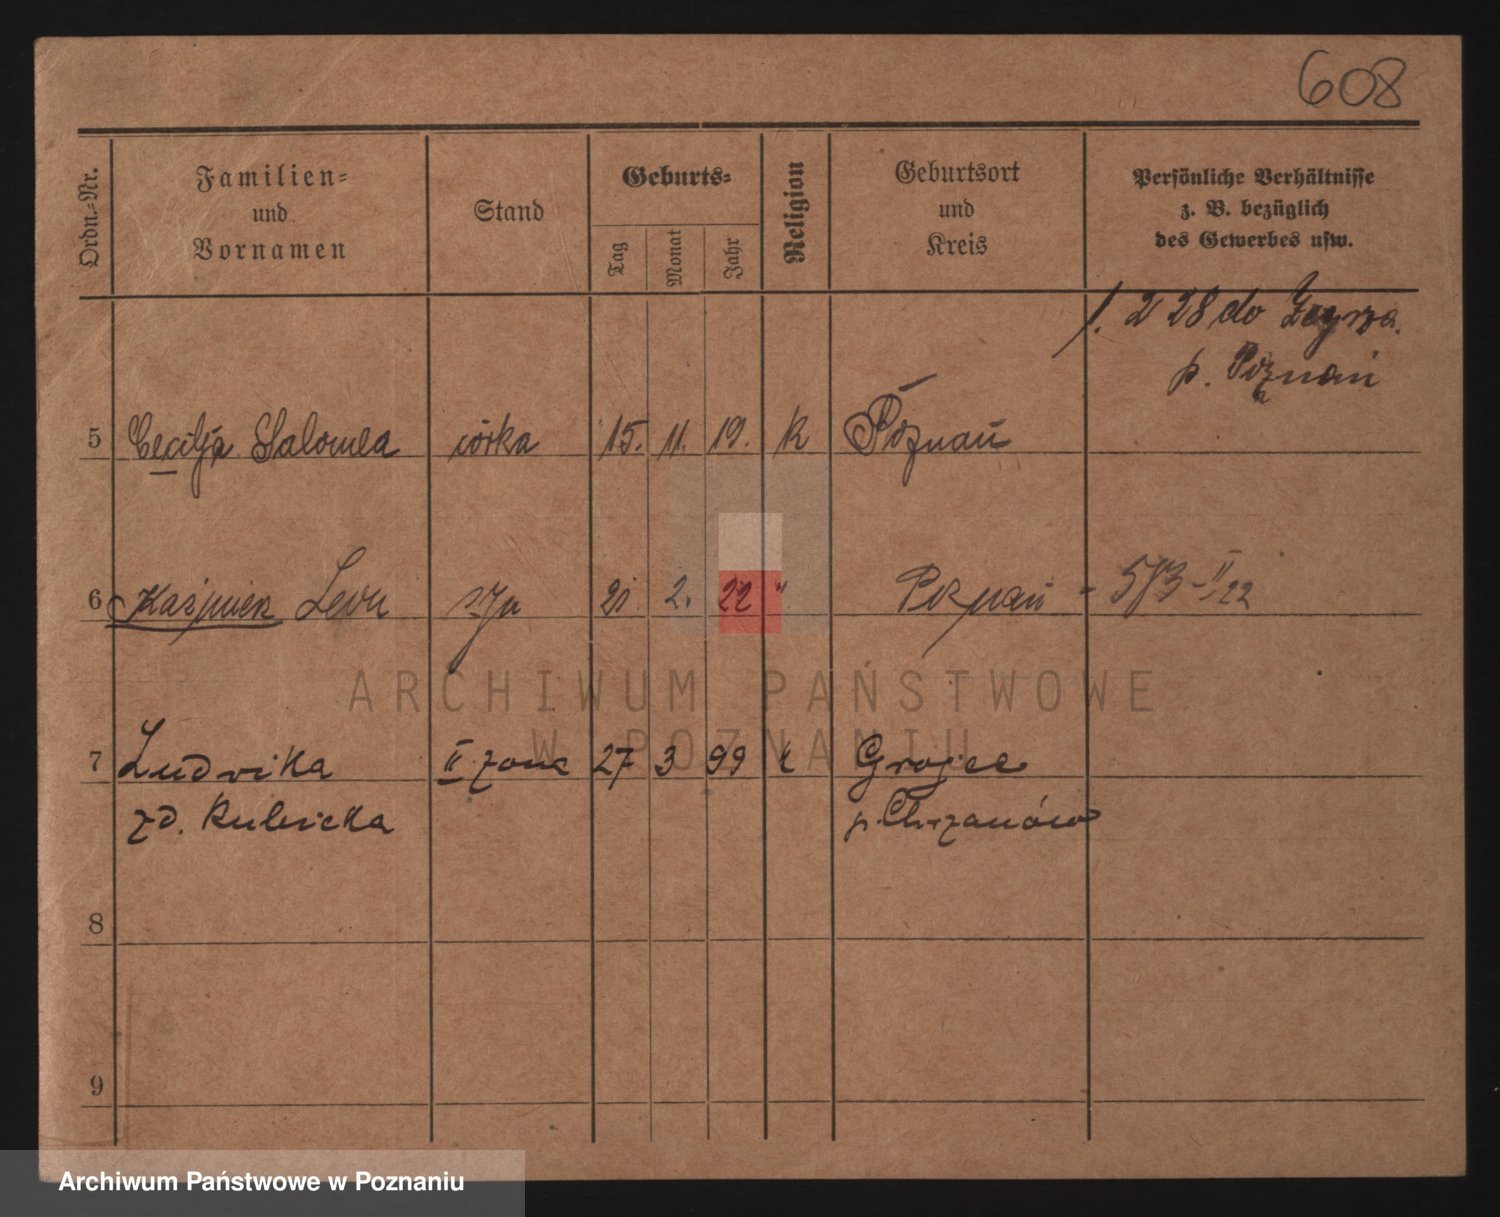 608
Ordn.=Nr.
Familien=
und
Vornamen
Stand
Geburts=
Tag
Monat
Jahr
Religion
Geburtsort
und
Kreis
Persönliche Verhältnisse
z. B. bezüglich
des Gewerbes usw.
1. 2 28 do
p. Poznań
5 Cecylja Salomea córka 15. 11. 19. k Poznań
6 Kaźmierz Leon syn 21 2. 22 " Poznań
7 Ludwika II żona 27 3 99 k Grojec
zd. Kubicka p. Chrzanów
8
9
ARCHIWUM PAŃSTWOWE
W POZNANIU
Archiwum Państwowe w Poznaniu